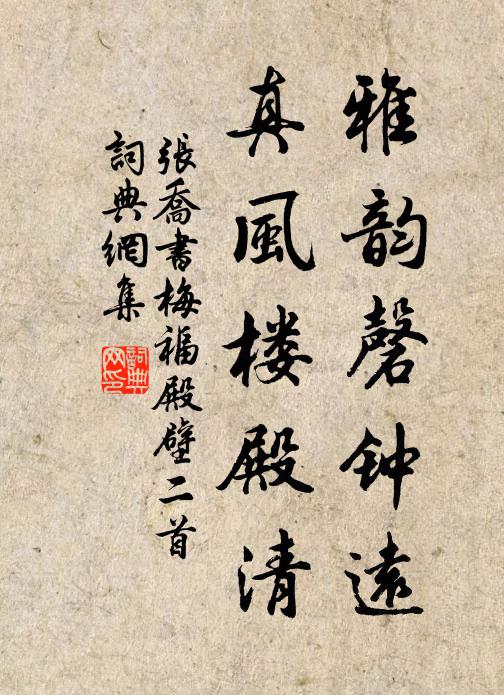 雅韵磬钟遠
真風楼殿清
張喬書梅福殿壁二首
詞典網集
詞典网印